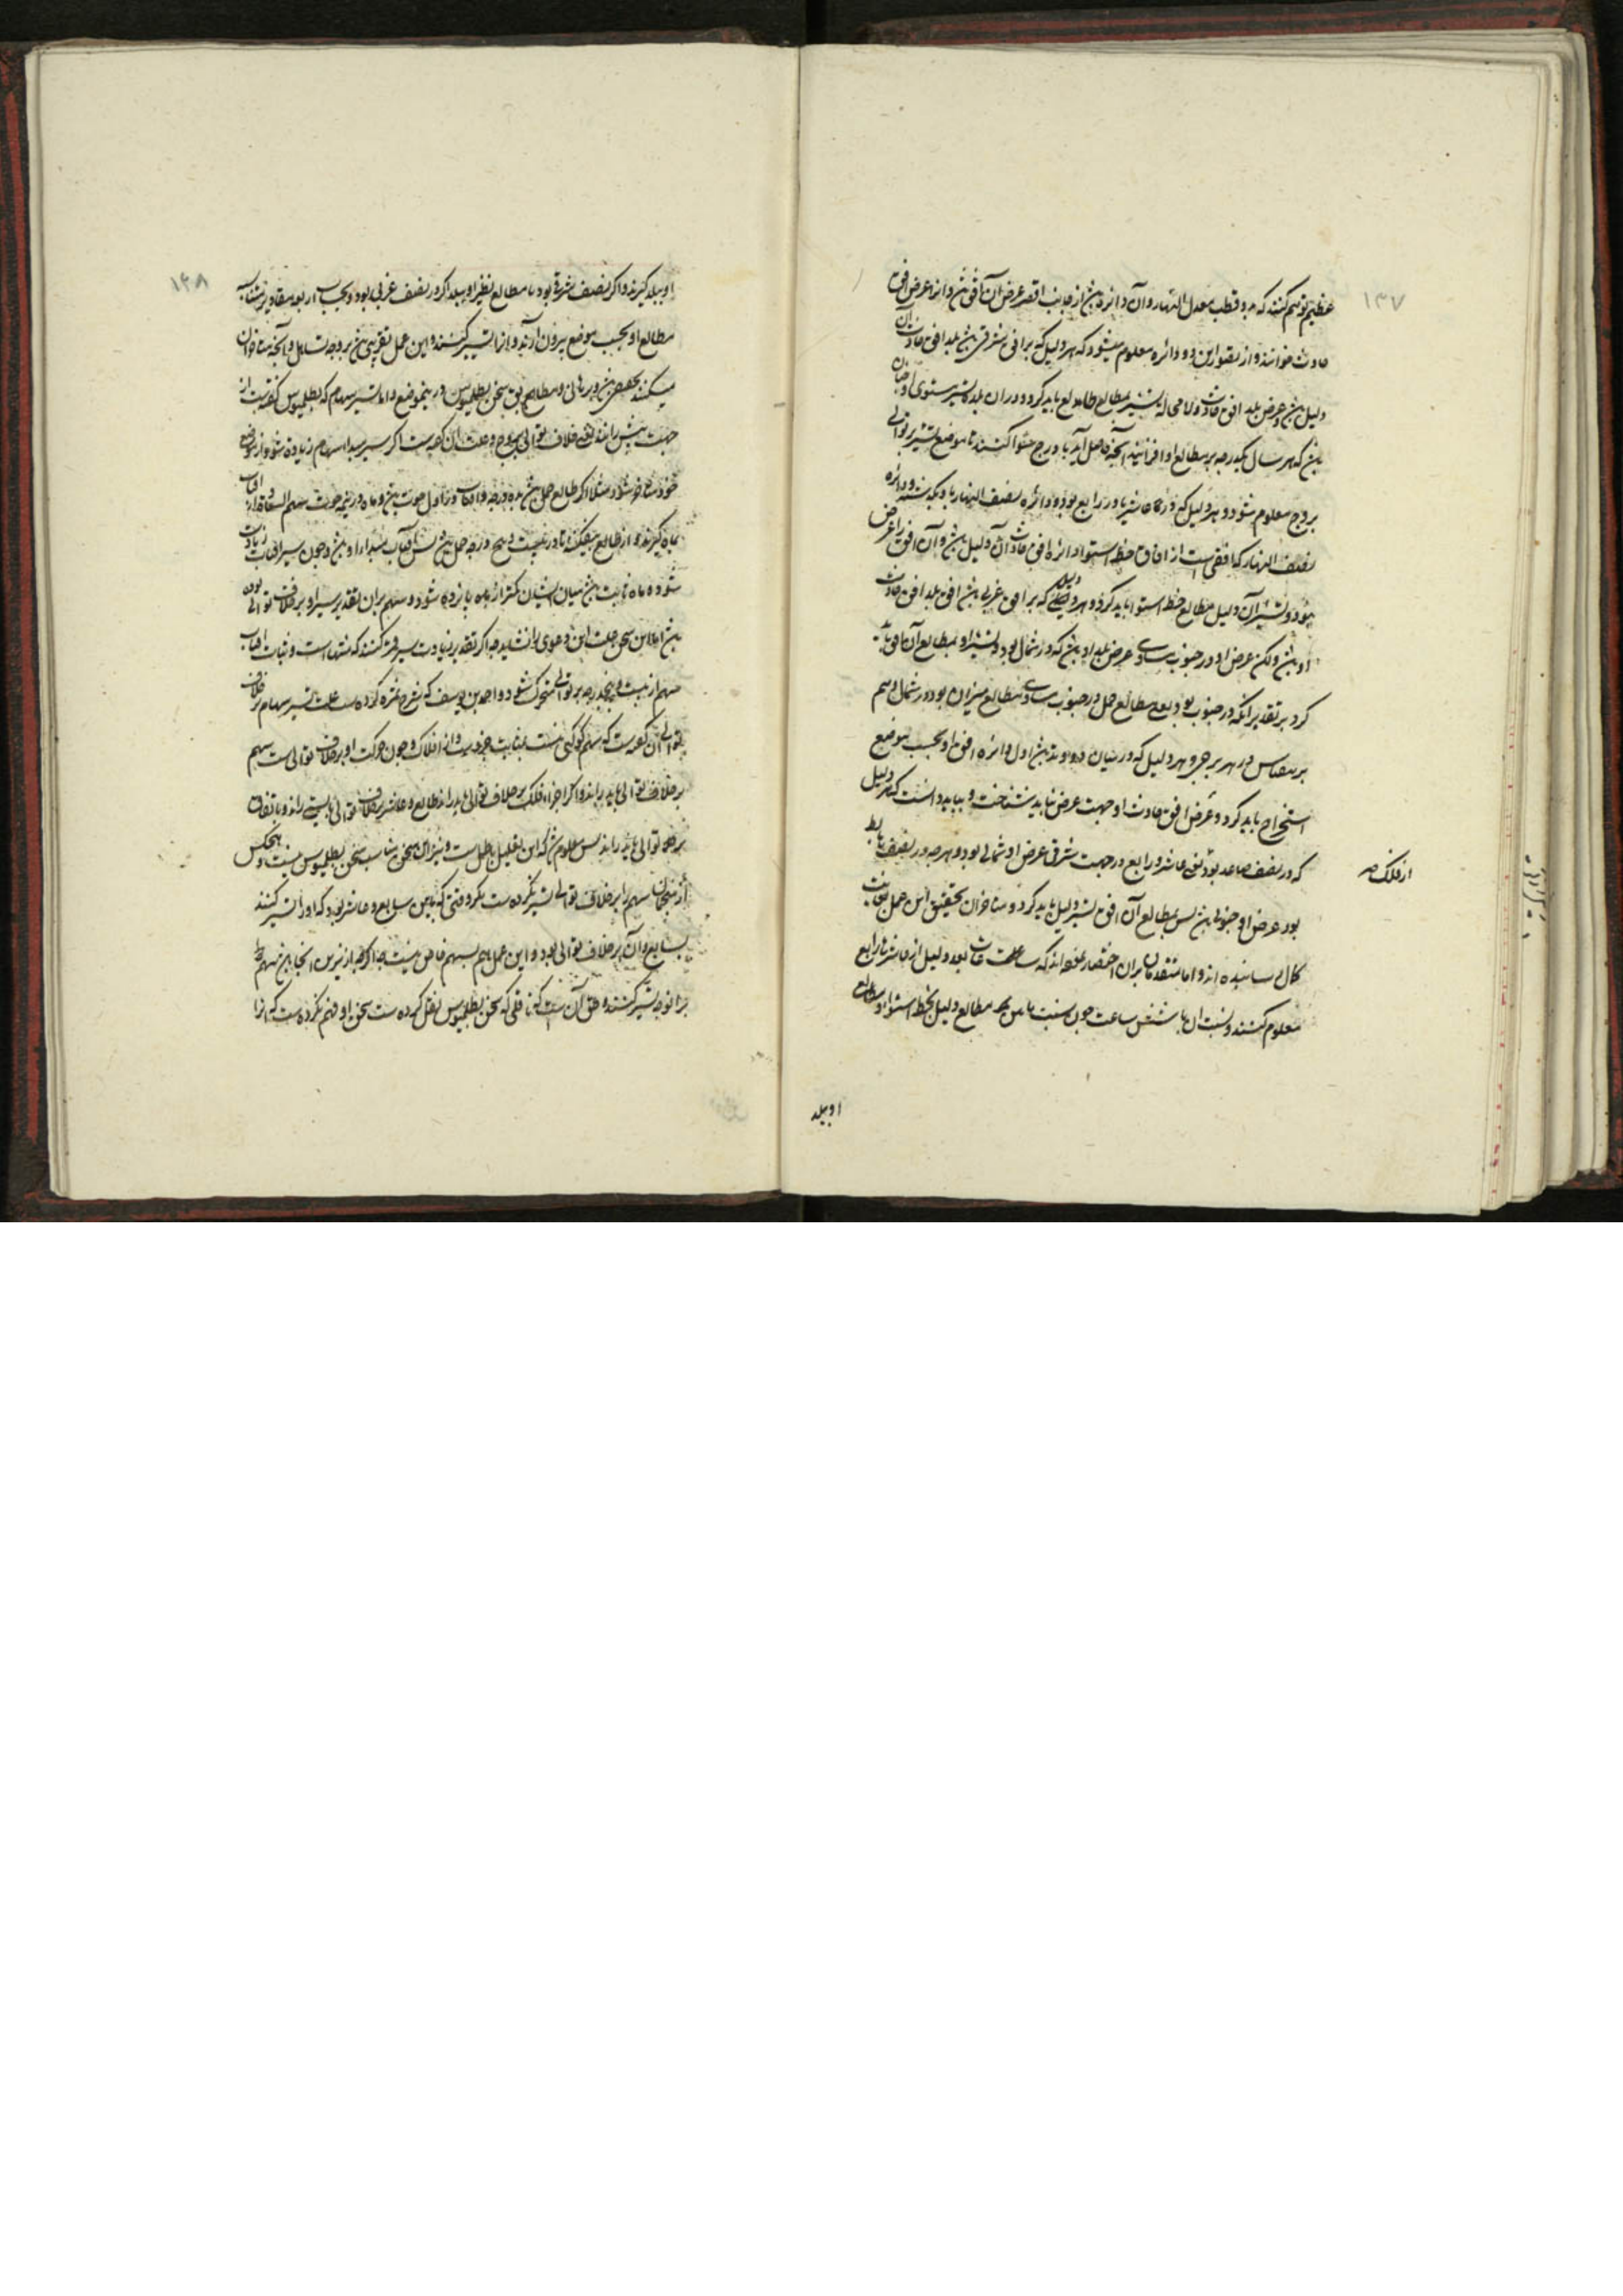 ۱۳۷
عظیم توهم کنند که بدو قطب معدل النهار و آن دائره بین از جانب اقصر عرض آن افق بین و آنرا عرض افق
حادث خوانند و از تصور این دو دائره معلوم میشود که هر دلیل که بر افق شرقی بین بلد افق حادث آن
دلیل بین و عرض بلد افق حادث ولامحاله تسییر بمطالع طالع باید کرد و در آن بلد
بین که هر سال یکدرجه بر مطالع او افزایند آنچه حاصل آید با درج سوا کنند تا موضع تسییر بر توالی
بروج معلوم شود و هر دلیل که در عاشر یا در رابع بود و دائره نصف النهار باو بگذشته و دائره
نصف النهار که افقی است از آفاق خط استوا دائره افق حادث آن دلیل بین و آن افق را عرض
نبود و تسییر آن دلیل بمطالع خط استوا باید کرد و هر دلیل که بر افق غربی بین افق بلد افق حادث
او بین ولکن عرض او در جنوب مساوی عرض بلد او بین که در شمال بود و تسییر او بمطالع آن افق باید
کرد بر تقدیر آنکه در جنوب بود یعنی مطالع حمل در جنوب مساوی مطالع میزان بود در شمال و هم
برین قیاس در هر برجی و هر دلیل که در میان دو وتد بین اول دائره افق او بحسب موضع
استخراج باید کرد و عرض افق حادث او جهت عرض بباید شناخت و بباید دانست که هر دلیل
که در نصف صاعد بود یعنی عاشر و رابع در جهت شرقی عرض او شمالی بود و هرچه در نصف هابط
از فلک صح
بود عرض او جنوبی بین پس بمطالع آن افق تسییر دلیل باید کرد و متاخران تحقیق این عمل بغایت
کمال رسانیده اند و اما متقدمان بر آن اختصار کرده اند که ساعات بعد دلیل از عاشر یا رابع
معلوم کنند و نسبت آن با شش ساعت چون نسبت مابین مطالع دلیل بخط استوا و مطالع
او ببلد
۱۳۸
او ببلد گیرند و اگر در نصف شرقی بود یا مطالع نظیر او ببلد اگر در نصف غربی بود و بحساب اربعه مقادیر متناسبه
مطالع او بحسب موضع بیرون آرند و آنرا تسییر کنند و این عمل تقریبی بین بر وجه تساهل و آنچه متاخران
میکنند تحقیقی بین و برهانی و مطابق سخن بطلمیوس در ینموضع و اما تسییر سهام که بطلمیوس گفته است از
جهت پیش رانند یعنی خلاف توالی بروج و علت آن گفته است اگر سیر مبدا سهام زیاده شود از موضع
خود متاخر شود مثلا اگر طالع حمل بین ده درجه و آفتاب در اول حوت بین و ماه در نیمه حوت سهم السعاده از آفتاب
بماه گیرند و از طالع بیفکنند تا در بیست و پنج درجه حمل بین و پس آفتاب مبدا او بین و چون سیر آفتاب زیادت
شود و ماه ثابت بین میان ایشان کمتر از پانزده شود و سهم بر آن تقدیر سیر او بر خلاف توالی بوده
بین اما این سخن علت این دعوی را نشاید چه اگر تقدیر زیادت سیر قمر کنند که منتهاست و ثبات آفتاب
سهم از بیست و پنجدرجه بر توالی متحرک شود و احمد بن یوسف که شرح ثمره کرده است علت تسییر سهام بر خلاف
توالی آن گفته است که سهم کوکبی نیست بمثابت جزویست از افلاک و چون حرکت او بر خلاف توالی است سهم
بر خلاف توالی باید راند و اگر اجزاء فلک بر خلاف توالی باید راند طالع و عاشر بر خلاف توالی بایستی راند و باتفاق
بر توالی باید راند پس معلوم شد که این تعلیل باطل است و نیز این سخن مناسب سخن بطلمیوس نیست و هیچکس
از منجمان سهم را بر خلاف توالی تسییر نکرده است مگر وقتی که مابین سابع و عاشر بود که او را تسییر کنند
بسابع و آن بر خلاف توالی بود و این عمل هم بسهم خاص نیست چه اگر هر یک از نیرین آنجا بین بهم
برانوجه تسییر کنند و حق آن است که ناقلی که سخن بطلمیوس نقل کرده است سخن او فهم نکرده است که آنرا